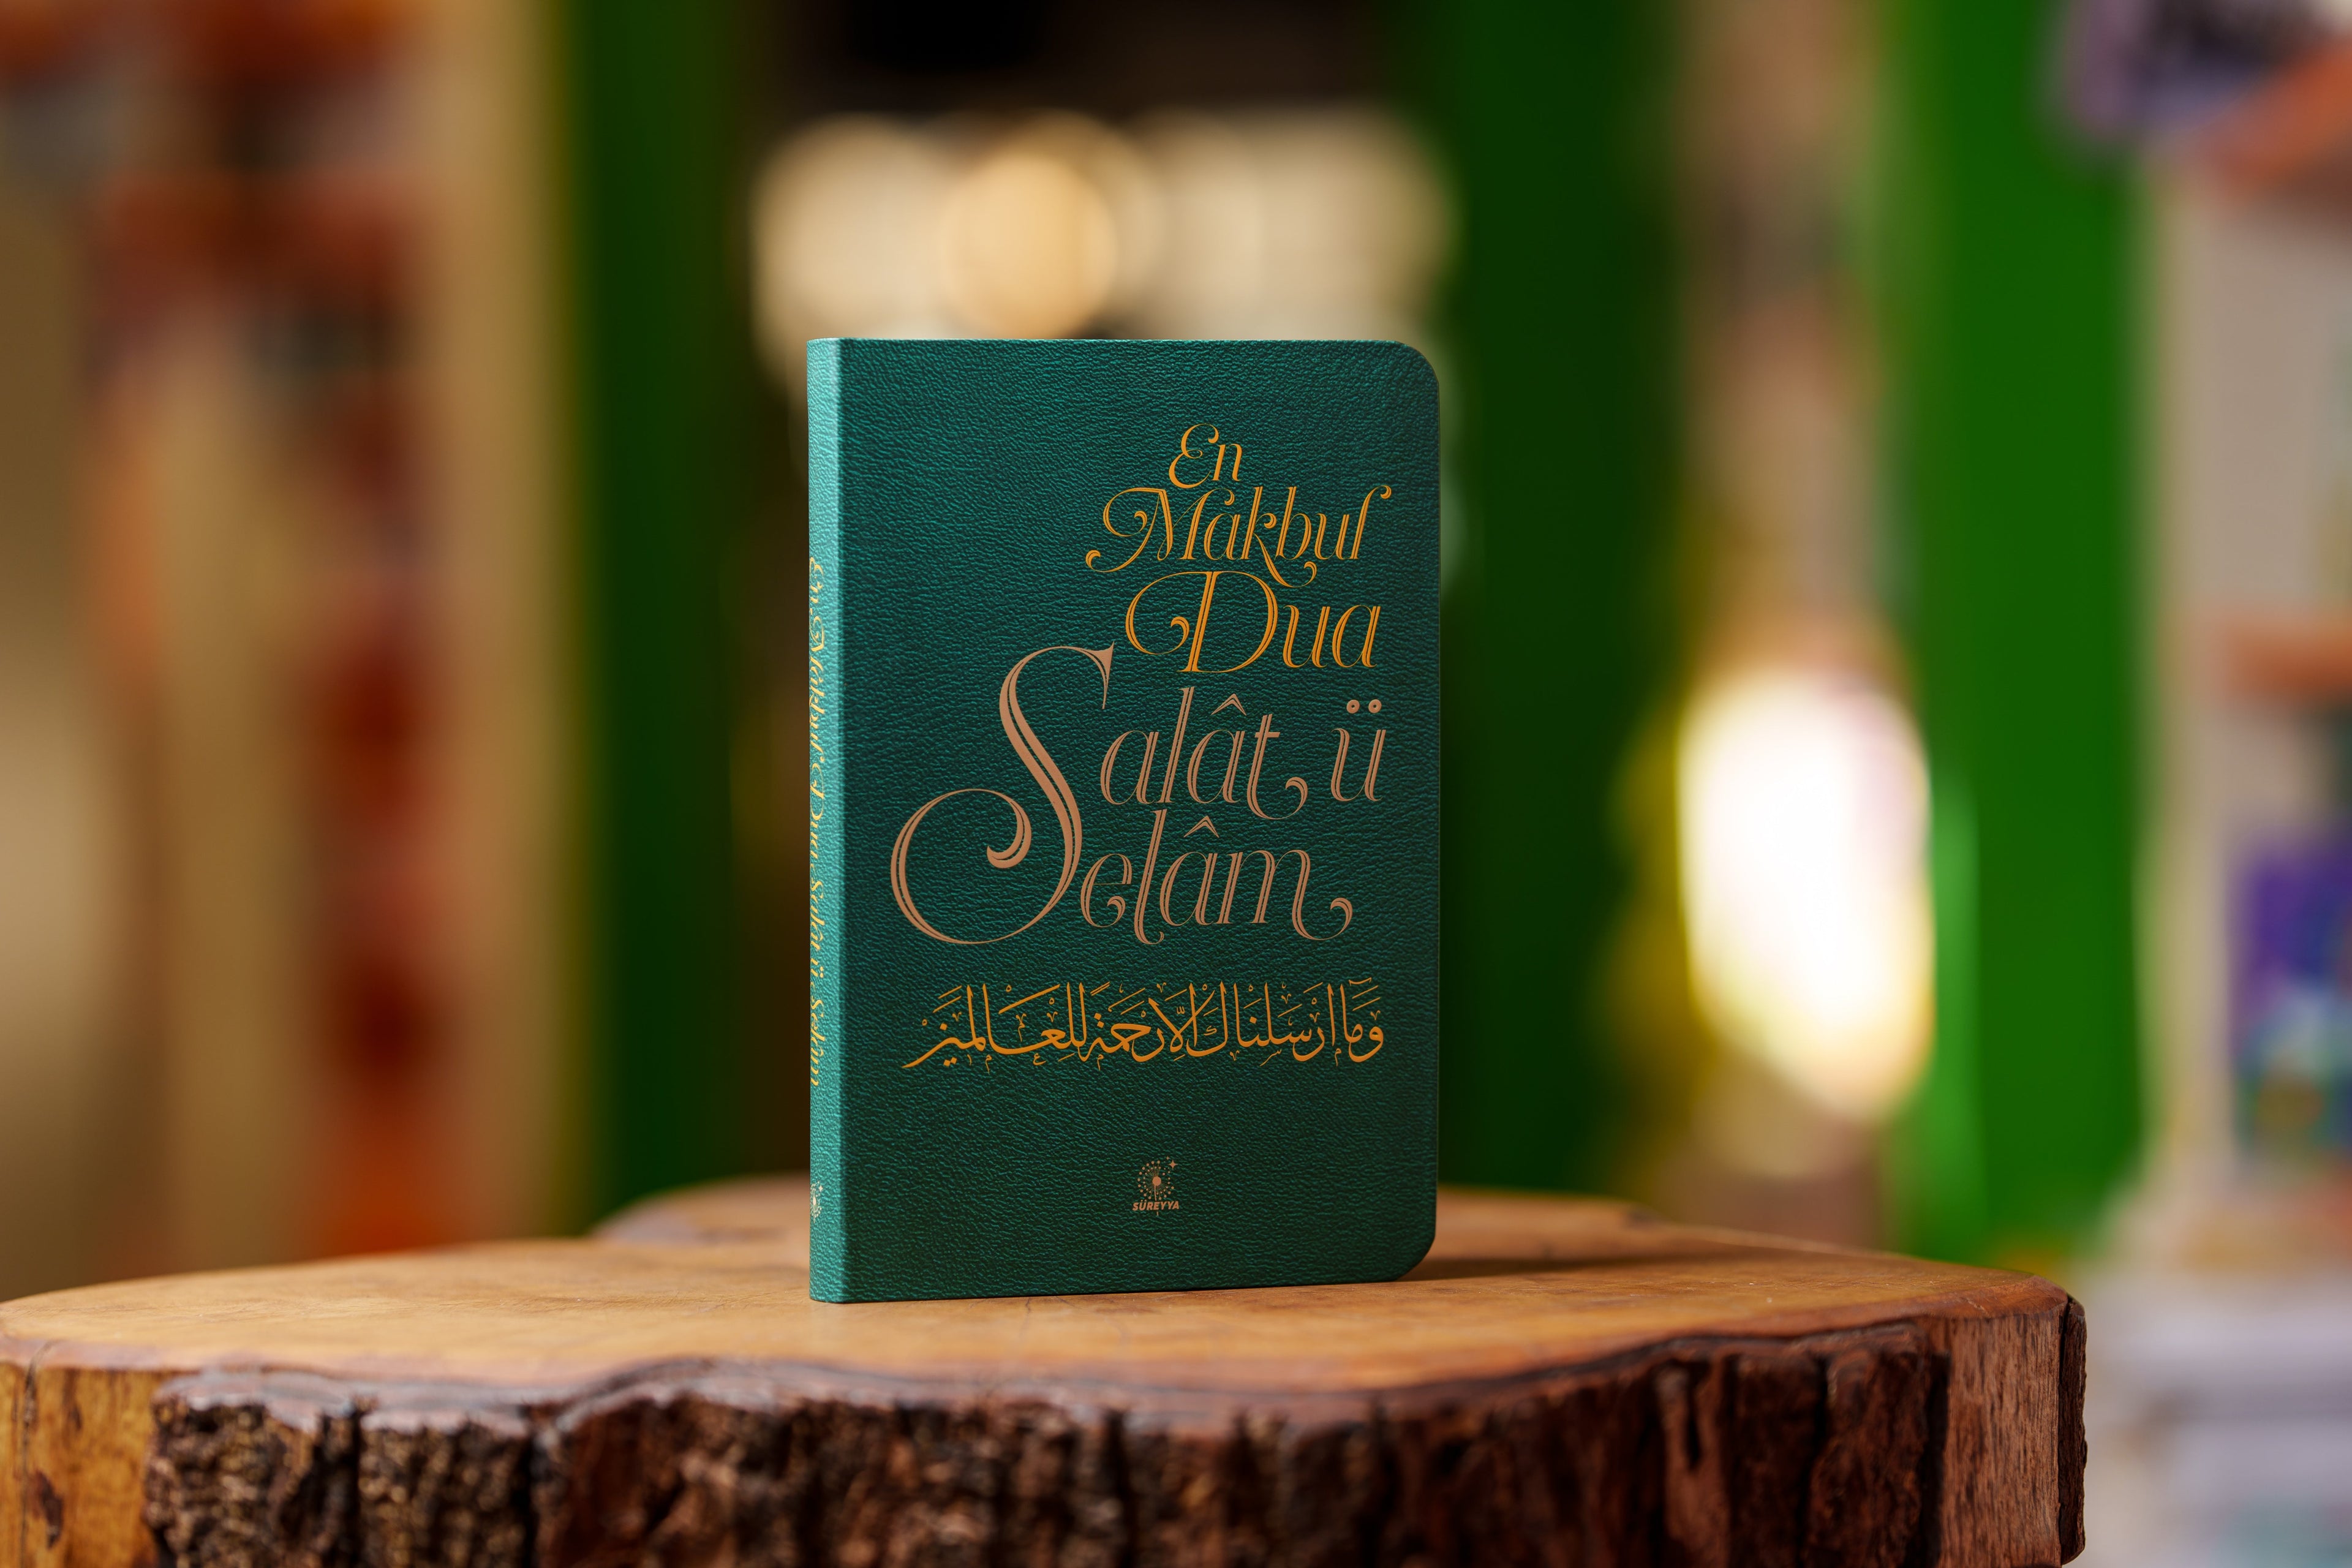 En
Makbul
Dua
Salât ü
Selâm
وَمَا اَرْسَلْنَاكَ اِلَّا رَحْمَةً لِلْعَالَمِينَ
SÜREYYA
En Makbul Dua Salât ü Selâm